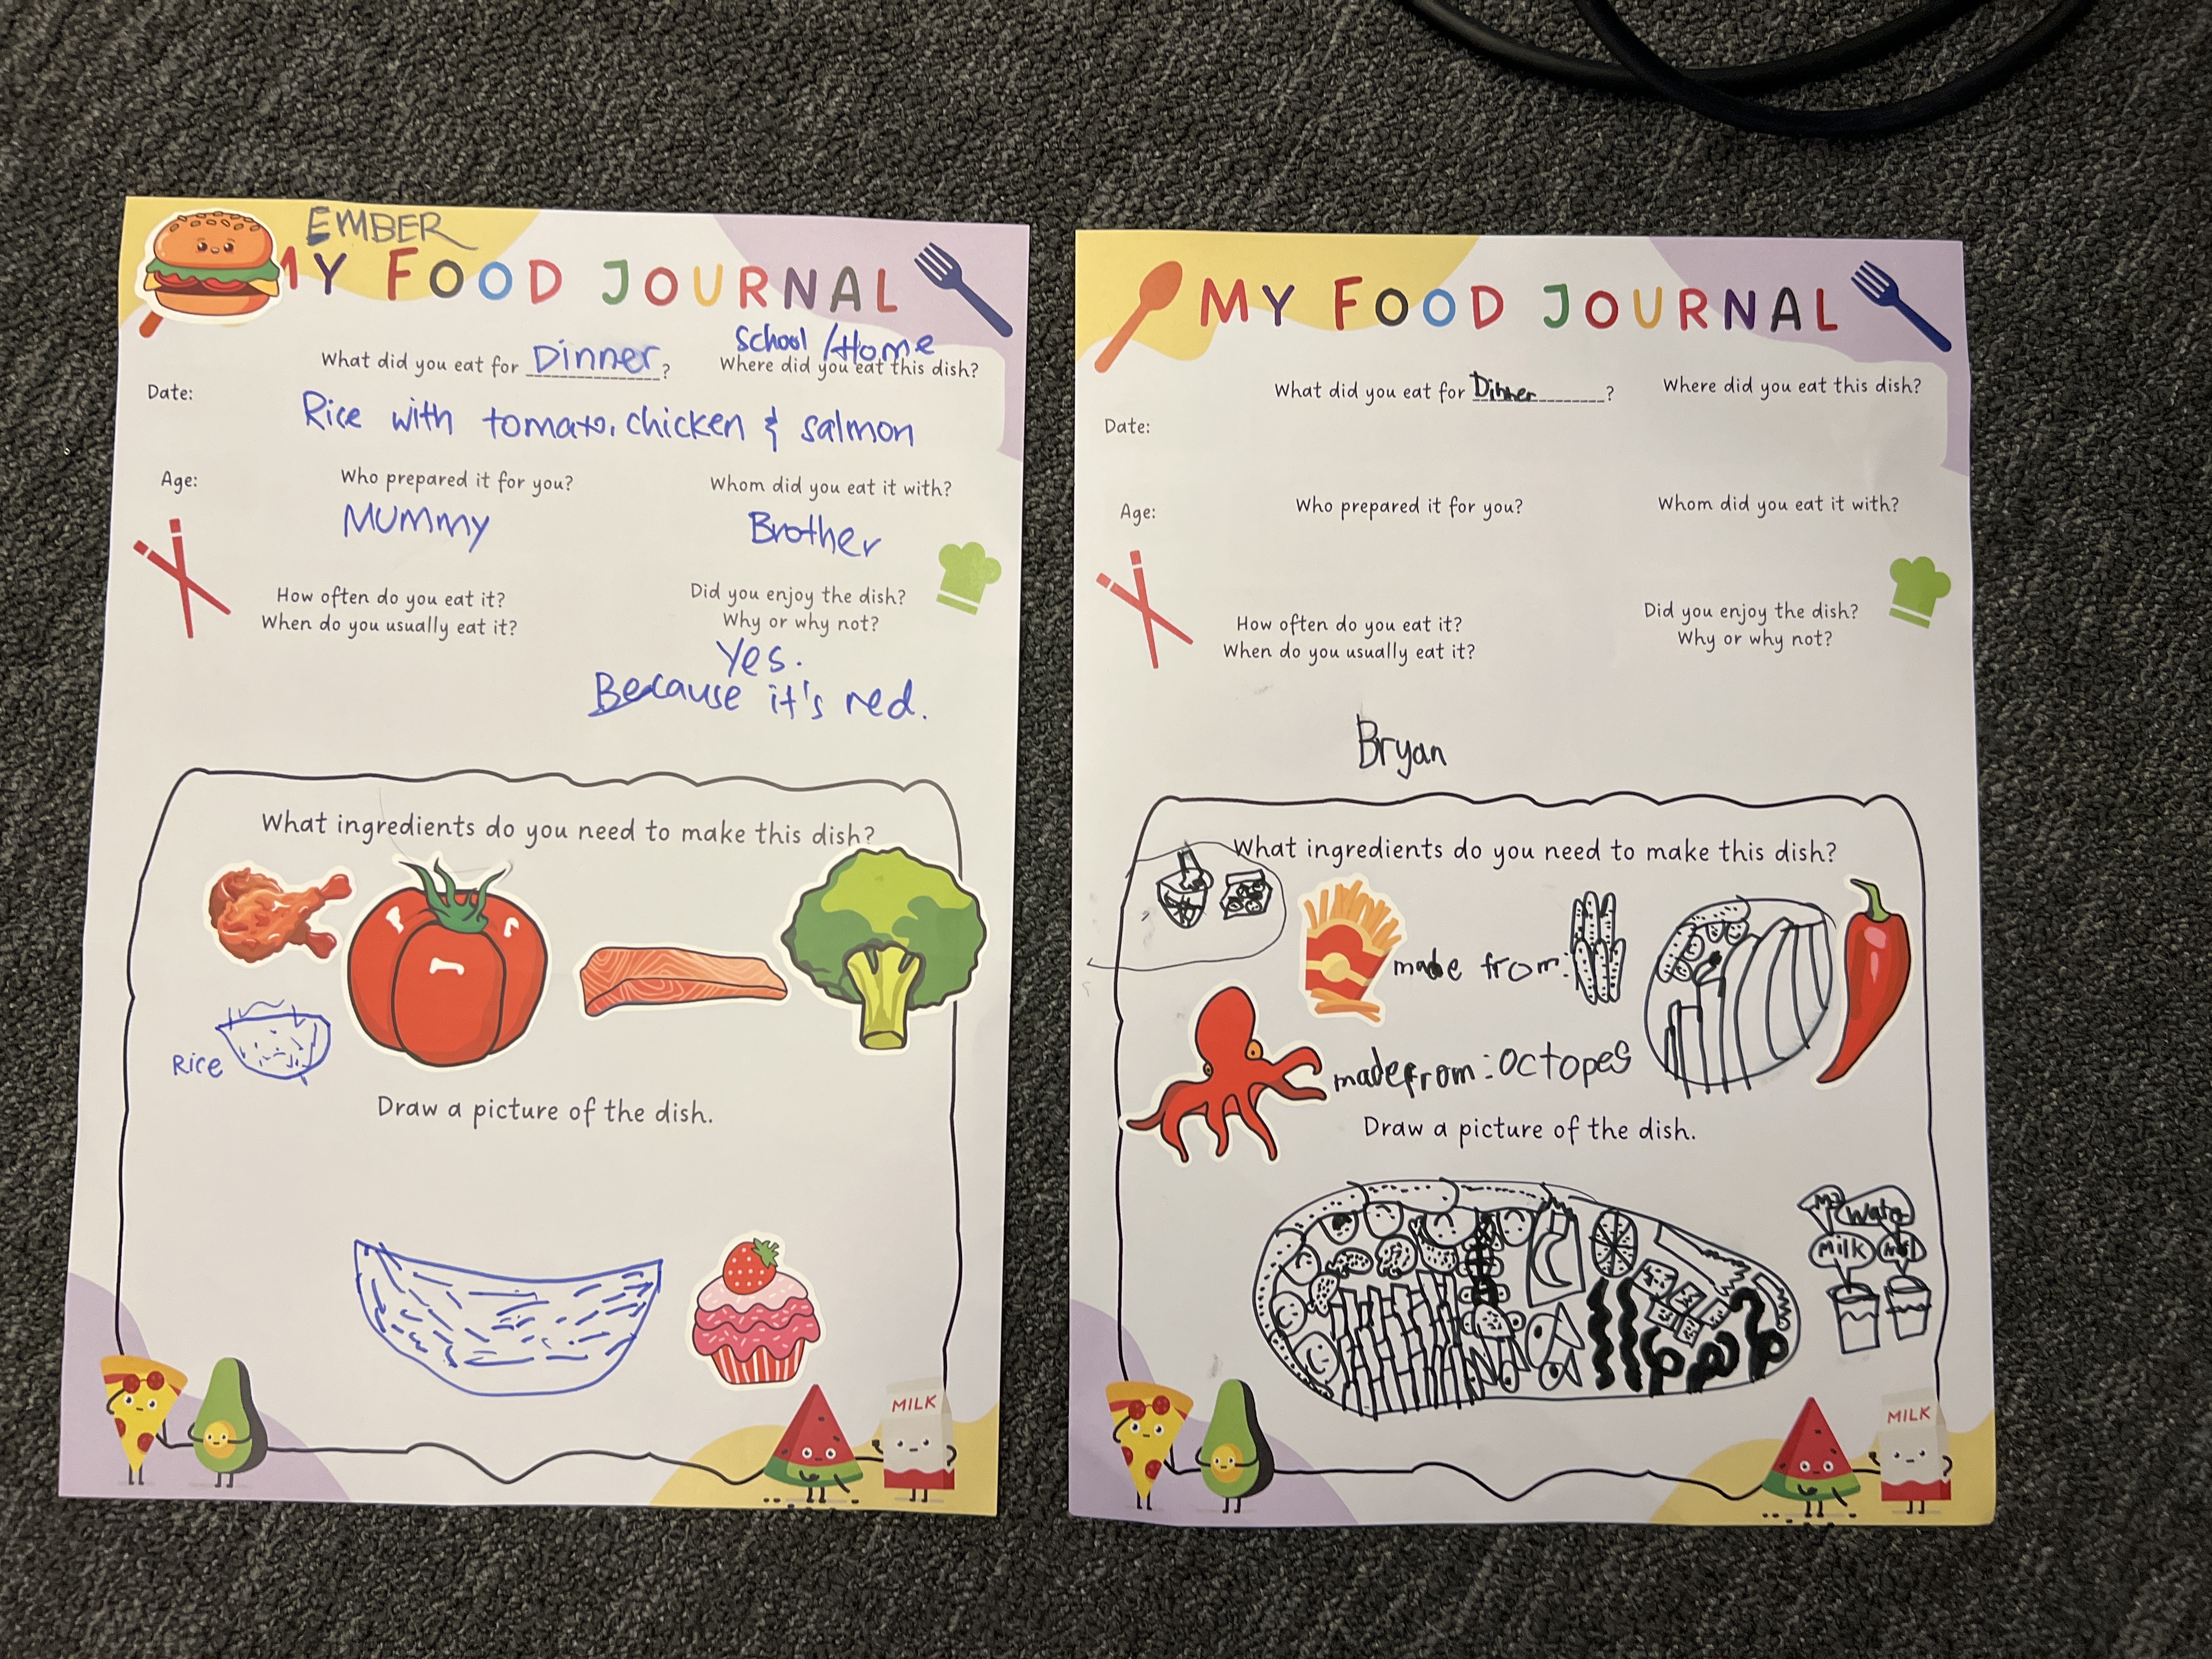 EMBER
MY FOOD JOURNAL
School / Home
What did you eat for Dinner?
Where did you eat this dish?
Date:
Rice with tomato, chicken & salmon
Age:
Who prepared it for you?
Whom did you eat it with?
Mummy
Brother
How often do you eat it?
When do you usually eat it?
Did you enjoy the dish?
Why or why not?
Yes.
Because it's red.
What ingredients do you need to make this dish?
Rice
Draw a picture of the dish.
MILK
MY FOOD JOURNAL
What did you eat for Dinner?
Where did you eat this dish?
Date:
Age:
Who prepared it for you?
Whom did you eat it with?
How often do you eat it?
When do you usually eat it?
Did you enjoy the dish?
Why or why not?
Bryan
What ingredients do you need to make this dish?
made from:
made from: Octopes
Draw a picture of the dish.
Water
Milk
MILK